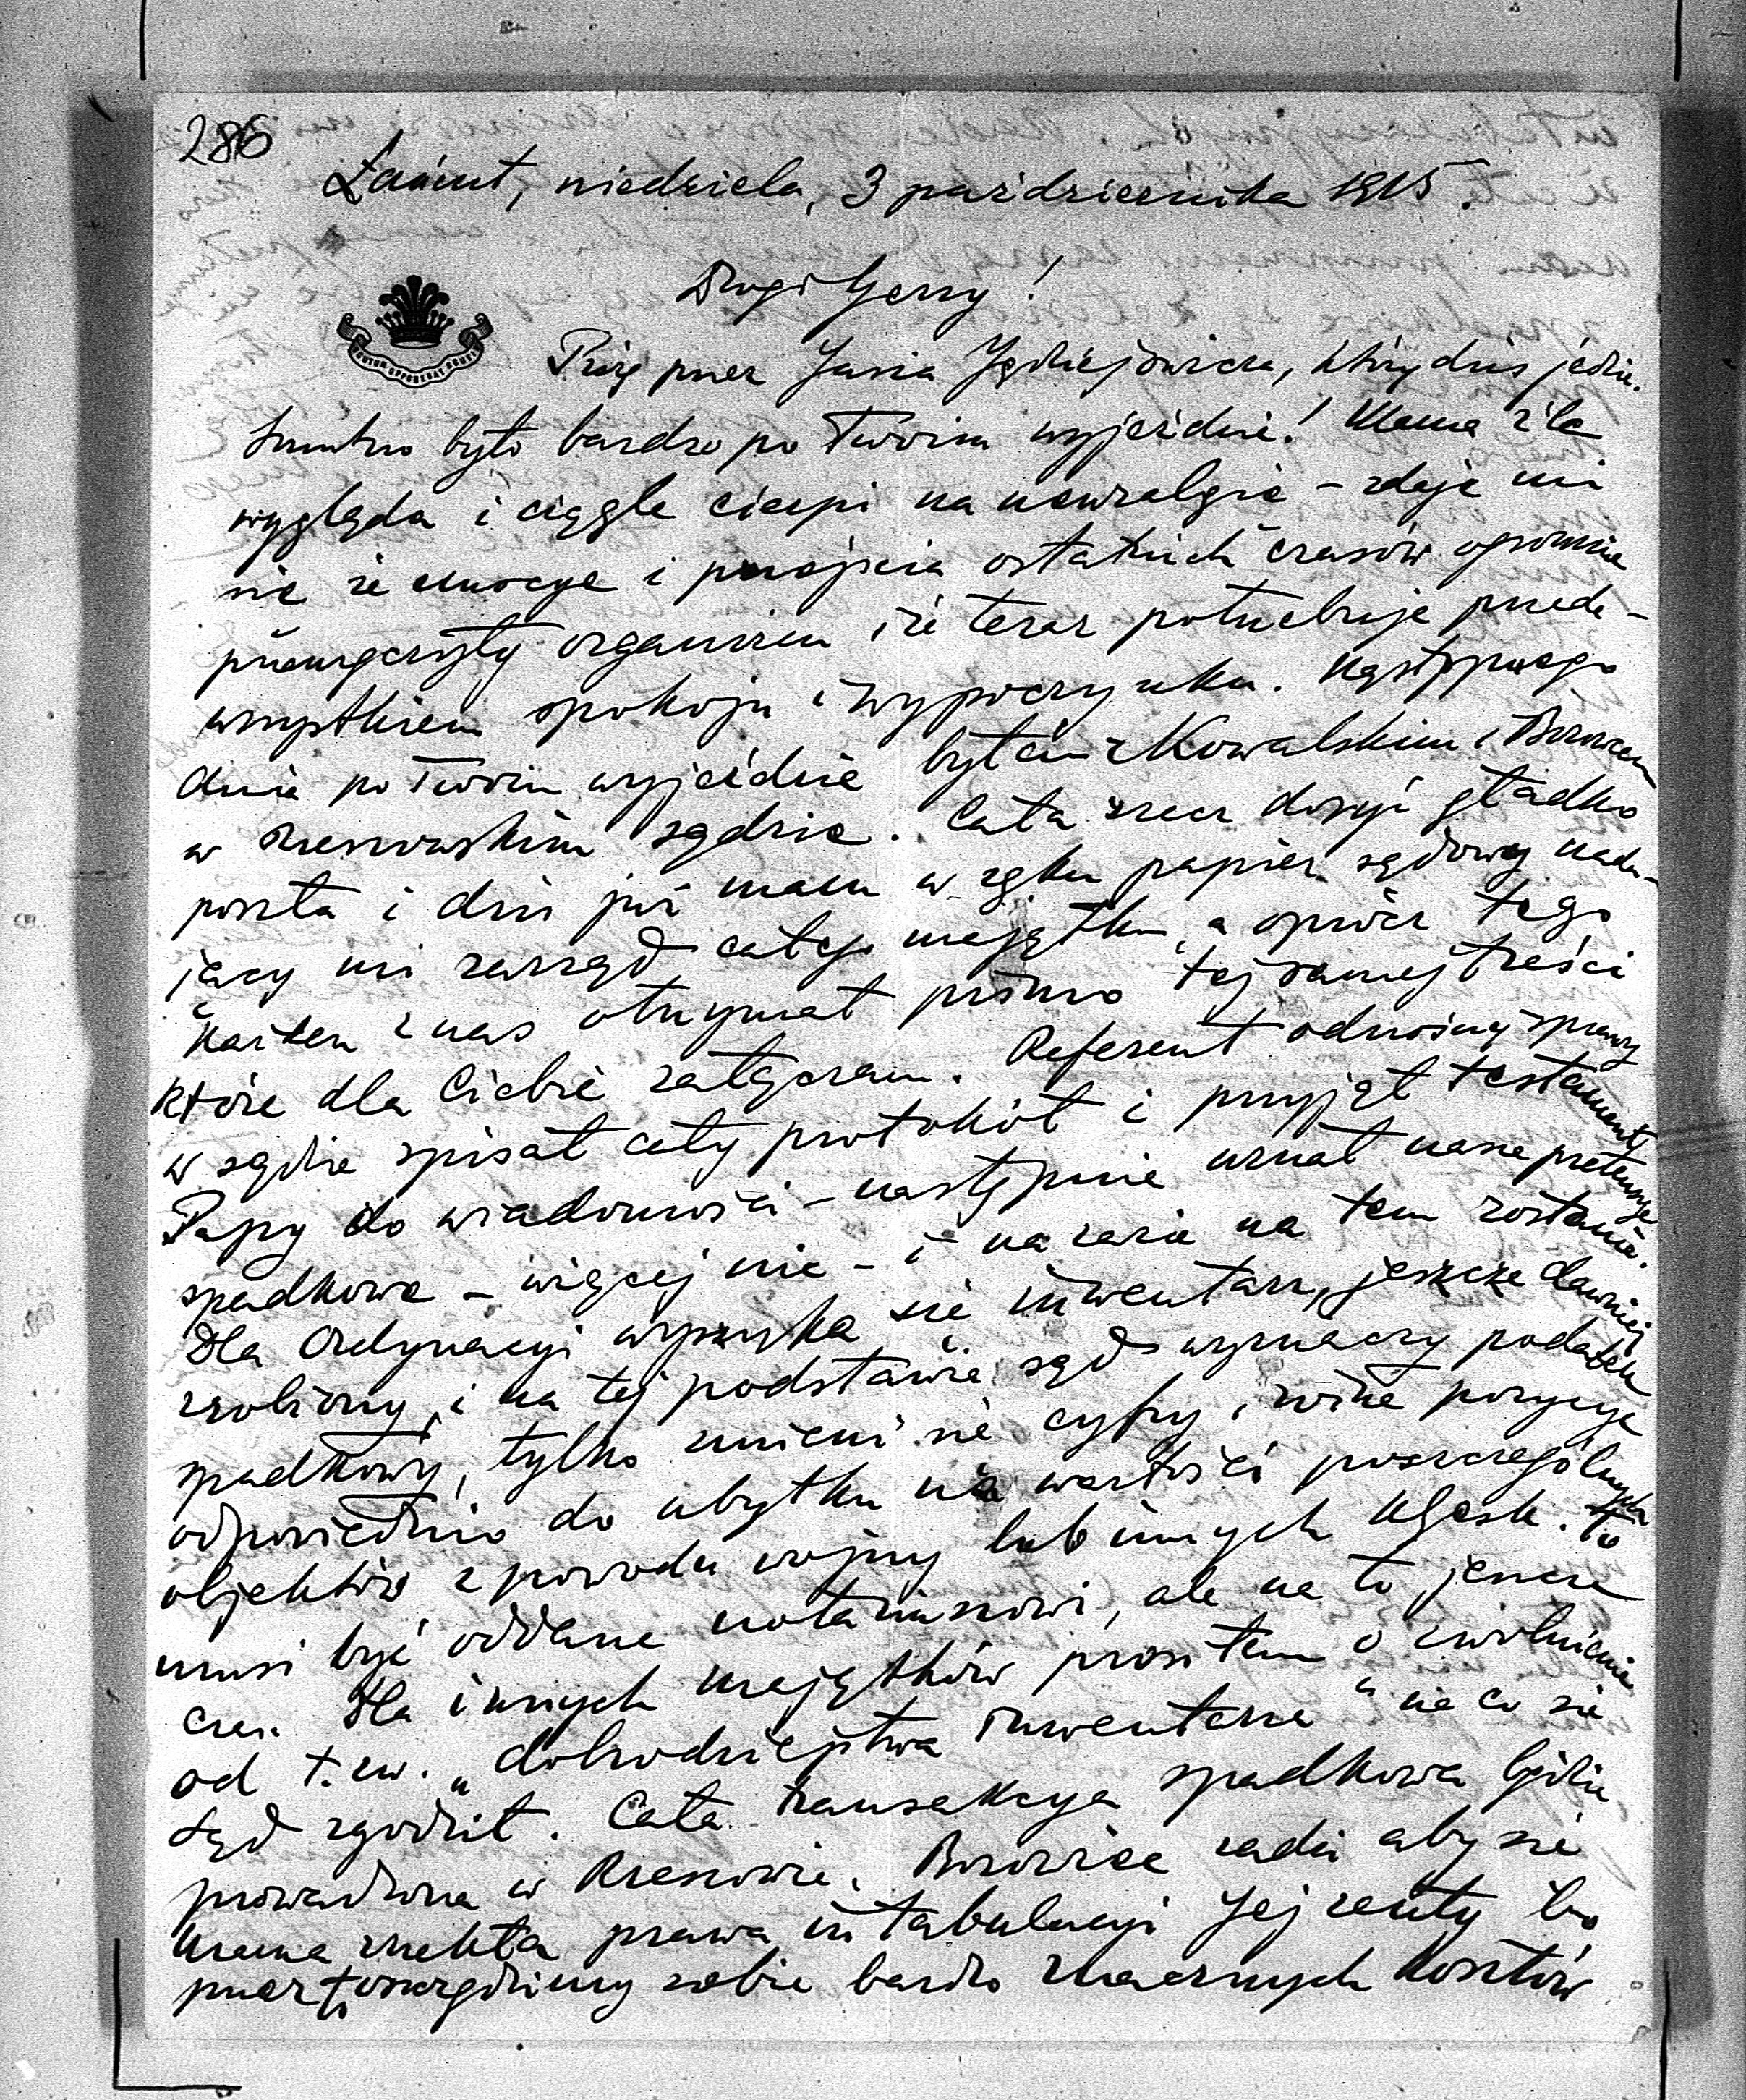 286
Łańcut, niedziela, 3 października 1915.
Drogi Jerzy!
Piszę przez Jasia Jędrzejowicza, który dziś jedzie.
Smutno było bardzo po Twoim wyjeździe! Mama źle
wygląda i ciągle cierpi na newralgię – zdaje mi
się że emocye i przejścia ostatnich czasów ogromnie
przemęczyły organizm i że teraz potrzebuje przede-
wszystkiem spokoju i wypoczynku. Następnego
dnia po Twoim wyjeździe byłem z Kowalskim i Borowcem
w rzeszowskim sądzie. Cała rzecz dosyć gładko
poszła i dziś już mam w ręku papier sądowy nada-
jący mi zarząd całego majątku, a oprócz tego
każden z nas otrzymał pismo tej samej treści
które dla Ciebie załączam. Referent odnośnej sprawy
w sądzie spisał cały protokół i przyjął testamenty
Papy do wiadomości – następnie uznał nasze pretensye
spadkowe – więcej nic – i na razie na tem zostanie.
Dla Ordynacyi wyszuka się inwentarz, jeszcze dawniej
zrobiony, i na tej podstawie sąd wyznaczy podatek
spadkowy, tylko zmieni się cyfry i różne pozycye
odpowiednio do ubytku na wartości poszczególnych
objektów z powodu wojny lub innych klęsk. To
musi być oddane notariuszowi, ale na to jeszcze
czas. Dla innych majątków prosiłem o zwolnienie
od t. zw. „dobrodziejstwa inwentarza" na co się
sąd zgodził. Cała transakcya spadkowa będzie
prowadzona w Rzeszowie. Borowiec radzi aby się
Mama zrzekła prawa intabulacyi Jej renty bo
przez to oszczędzimy sobie bardzo znacznych kosztów